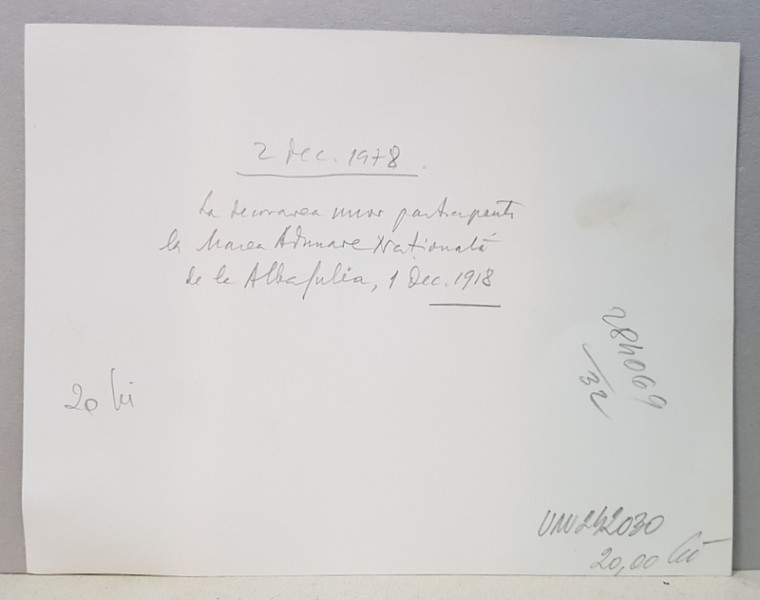 2 Dec. 1978
La decorarea unor participanți
la Marea Adunare Națională
de la Alba Iulia, 1 Dec. 1918
20 lei
284069
/32
20,00 lei